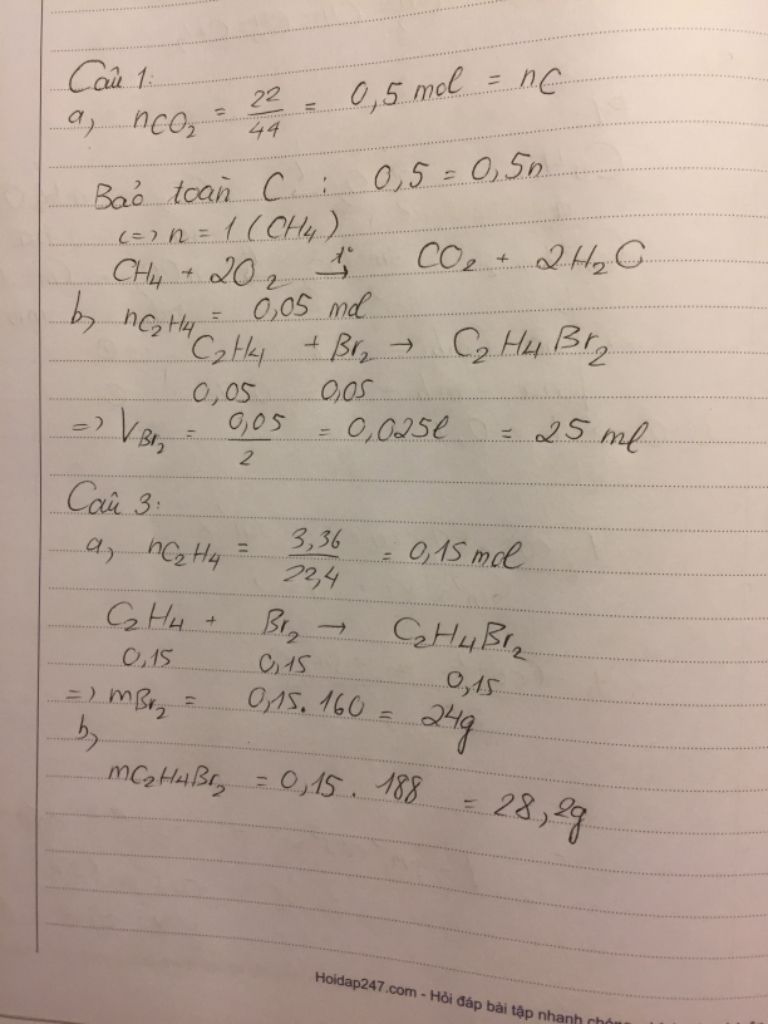 Câu 1:
a, nCO₂ = 22/44 = 0,5 mol = nC
Bảo toàn C : 0,5 = 0,5n
<=> n = 1 (CH₄)
CH₄ + 2O₂ t°→ CO₂ + 2H₂O
b, nC₂H₄ = 0,05 mol
C₂H₄ + Br₂ → C₂H₄Br₂
0,05 0,05
=> VBr₂ = 0,05/2 = 0,025l = 25 ml
Câu 3:
a, nC₂H₄ = 3,36/22,4 = 0,15 mol
C₂H₄ + Br₂ → C₂H₄Br₂
0,15 0,15 0,15
=> mBr₂ = 0,15.160 = 24g
b,
mC₂H₄Br₂ = 0,15 . 188 = 28,2g
Hoidap247.com - Hỏi đáp bài tập nhanh chóng